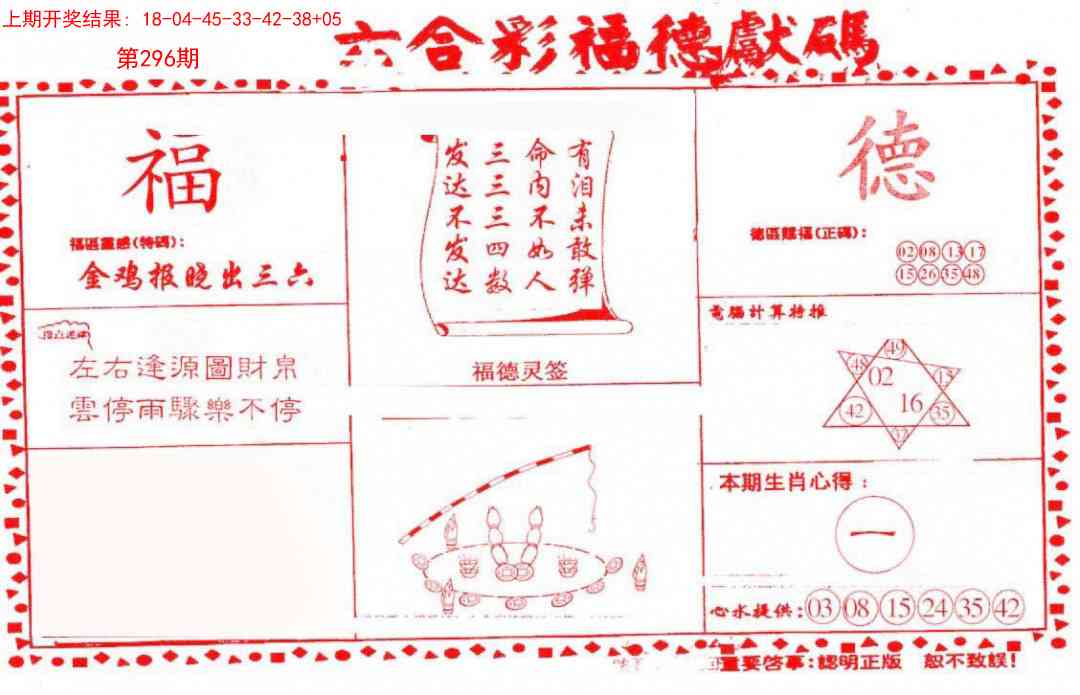 上期开奖结果: 18-04-45-33-42-38+05
第296期
六合彩福德獻碼
福
福區靈感(特碼):
金鸡报晓出三六
左右逢源圖財帛
雲停雨驟樂不停
有泪未敢弹
命内不如人
三三三四数
发达不发达
福德灵签
德
德區賜福(正碼):
02 08 13 17
15 26 35 48
電腦計算特推
49
48 02 15
42 16 35
本期生肖心得:
一
心水提供: 03 08 15 24 35 42
重要啓事:認明正版 恕不致誤!